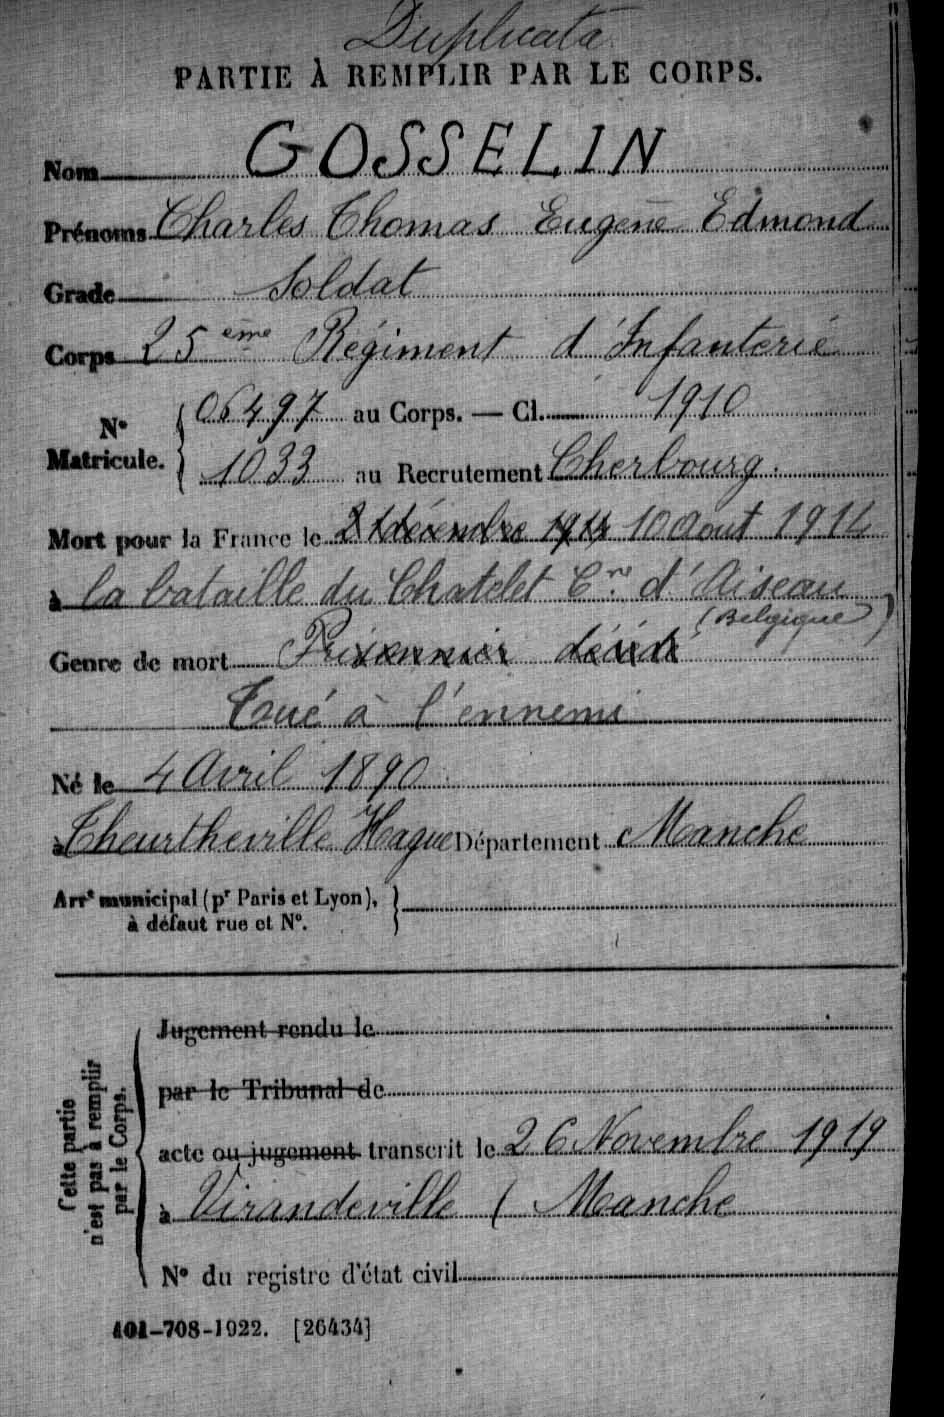 Duplicata
PARTIE À REMPLIR PAR LE CORPS.
Nom GOSSELIN
Prénoms Charles Thomas Eugène Edmond
Grade Soldat
Corps 25ème Régiment d'Infanterie
N° Matricule. 06497 au Corps. — Cl. 1910
1033 au Recrutement Cherbourg.
Mort pour la France le 10 Aout 1914
à la bataille du Chatelet Cne d'Aiseau
(Belgique)
Genre de mort Prisonnier décédé
Tué à l'ennemi
Né le 4 Avril 1890
à Theurtheville Hague Département Manche
Arrt municipal (pr Paris et Lyon),
à défaut rue et N°.
Cette partie
n'est pas à remplir
par le Corps.
Jugement rendu le
par le Tribunal de
acte ou jugement transcrit le 26 Novembre 1919
à Virandeville (Manche
N° du registre d'état civil
101-708-1922. [26434]